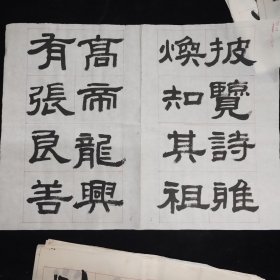 披覽詩雅
煥知其祖
高帝龍興
有張良善